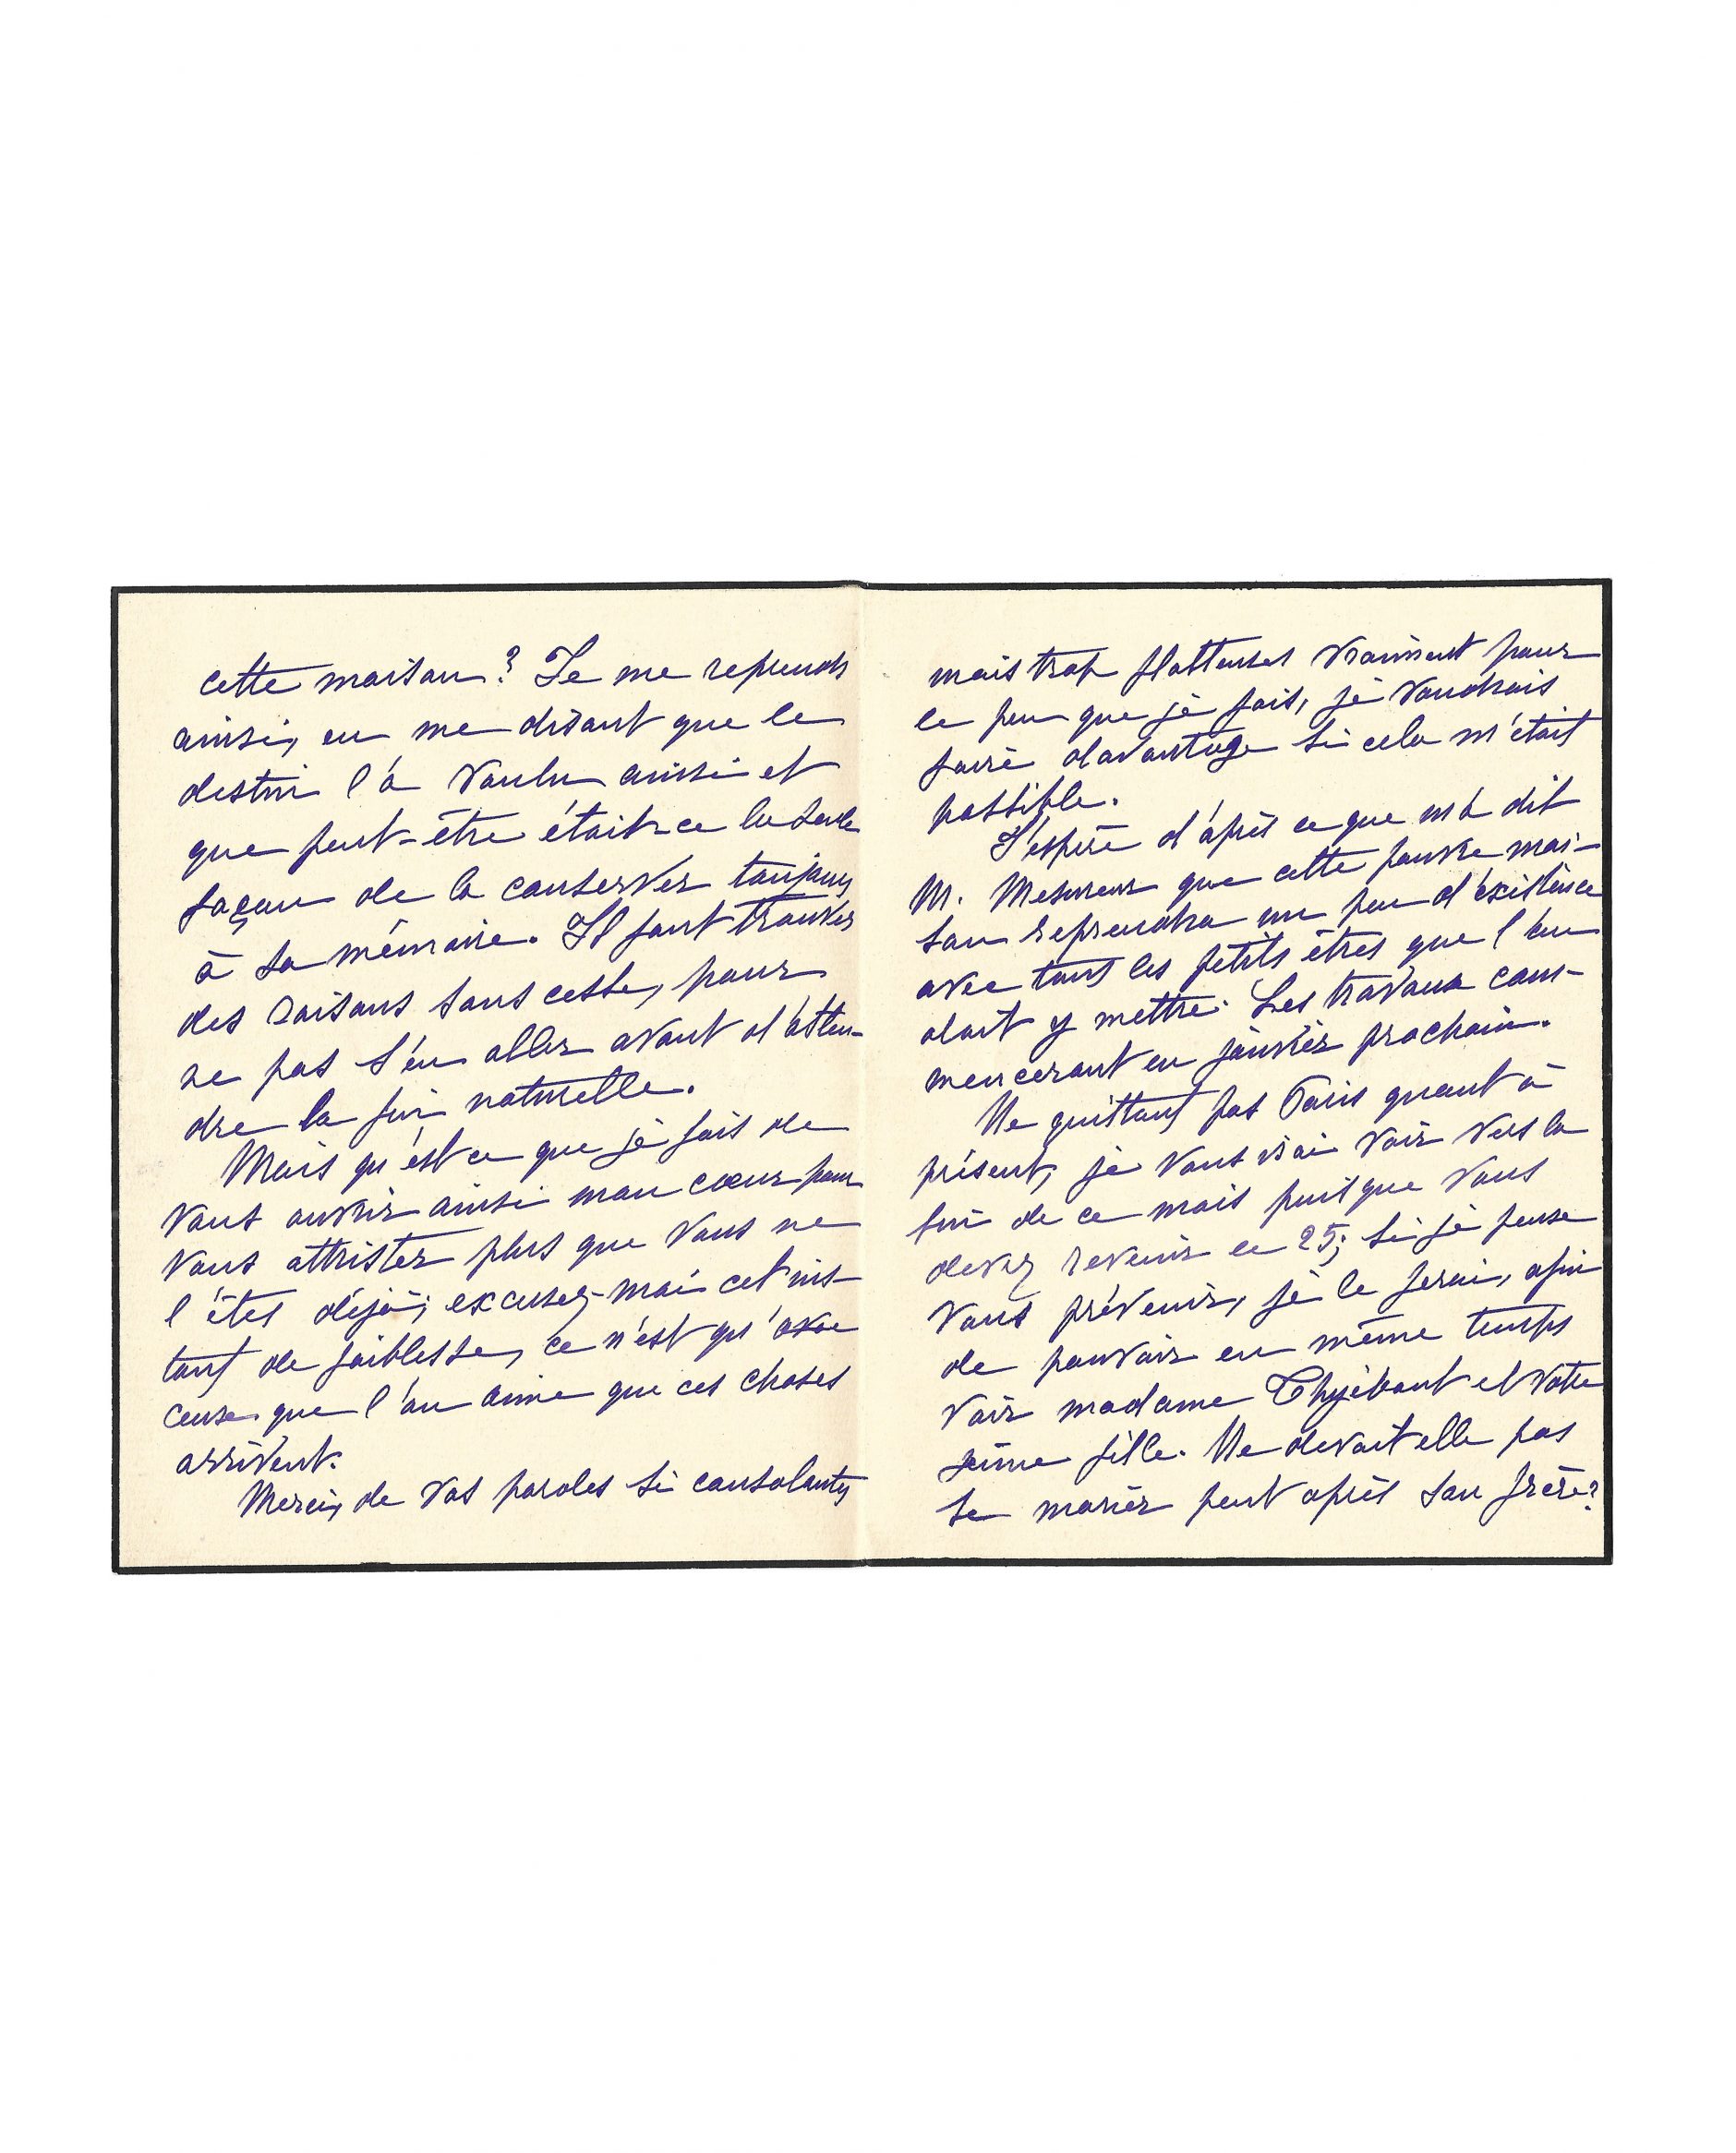 cette maison ? Je me reprends
ainsi, en me disant que le
destin l'a voulu ainsi et
que peut-être était-ce la seule
façon de la conserver toujours
à sa mémoire. Il faut trouver
des raisons sans cesse, pour
ne pas s'en aller avant d'atten-
dre la fin naturelle.
Mais qu'est ce que je fais de
vous ouvrir ainsi mon cœur pour
vous attrister plus que vous ne
l'êtes déjà; excusez-moi cet ins-
tant de faiblesse, ce n'est qu'avec
ceux que l'on aime que ces choses
arrivent.
Merci, de vos paroles si consolantes
mais trop flatteuses vraiment pour
le peu que je fais, je voudrais
faire davantage si cela m'était
possible.
J'espère d'après ce que m'a dit
M. Mesureur que cette pauvre mai-
son reprendra un peu d'existence
avec tous les petits êtres que l'on
doit y mettre. Les travaux com-
menceront en janvier prochain.
Ne quittant pas Paris quant à
présent, je vous irai voir vers la
fin de ce mois puisque vous
devez revenir le 25; si je peuse
vous prévenir, je le ferai, afin
de pouvoir en même temps
voir madame Thyébaut et votre
jeune fille. Ne devait elle pas
se marier peut après son frère ?